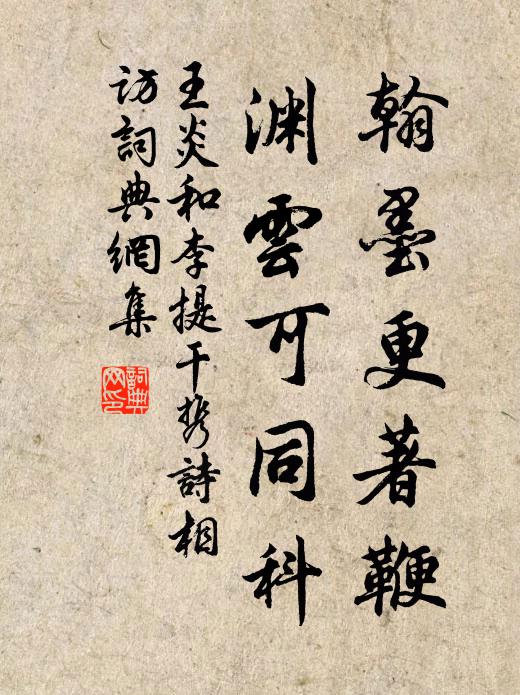 翰墨更著鞭
渊雲可同科
王炎和李提干携詩相
訪詞典網集
詞典
网印